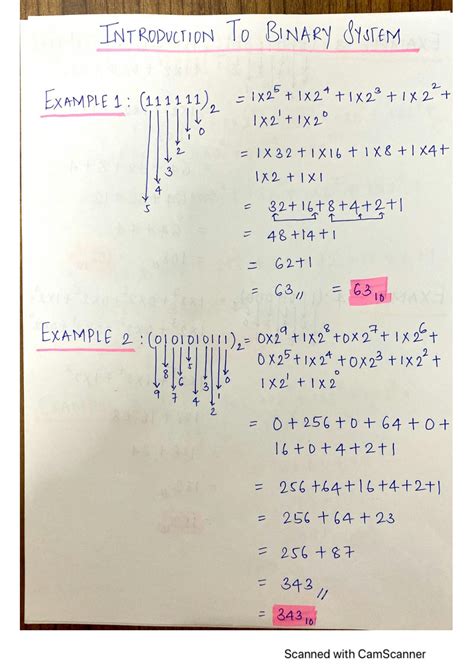 INTRODUCTION TO BINARY SYSTEM
EXAMPLE 1 : (111111)₂ = 1×2⁵ + 1×2⁴ + 1×2³ + 1×2² +
1×2¹ + 1×2⁰
5 4 3 2 1 0
= 1×32 + 1×16 + 1×8 + 1×4 +
1×2 + 1×1
= 32+16+8+4+2+1
= 48+14+1
= 62+1
= 63,, = 63₁₀
EXAMPLE 2 : (0101010111)₂ = 0×2⁹ + 1×2⁸ + 0×2⁷ + 1×2⁶ +
0×2⁵ + 1×2⁴ + 0×2³ + 1×2² +
1×2¹ + 1×2⁰
9 8 7 6 5 4 3 2 1 0
= 0 + 256 + 0 + 64 + 0 +
16 + 0 + 4 + 2 + 1
= 256 + 64 + 16 + 4 + 2 + 1
= 256 + 64 + 23
= 256 + 87
= 343,,
= 343₁₀
Scanned with CamScanner